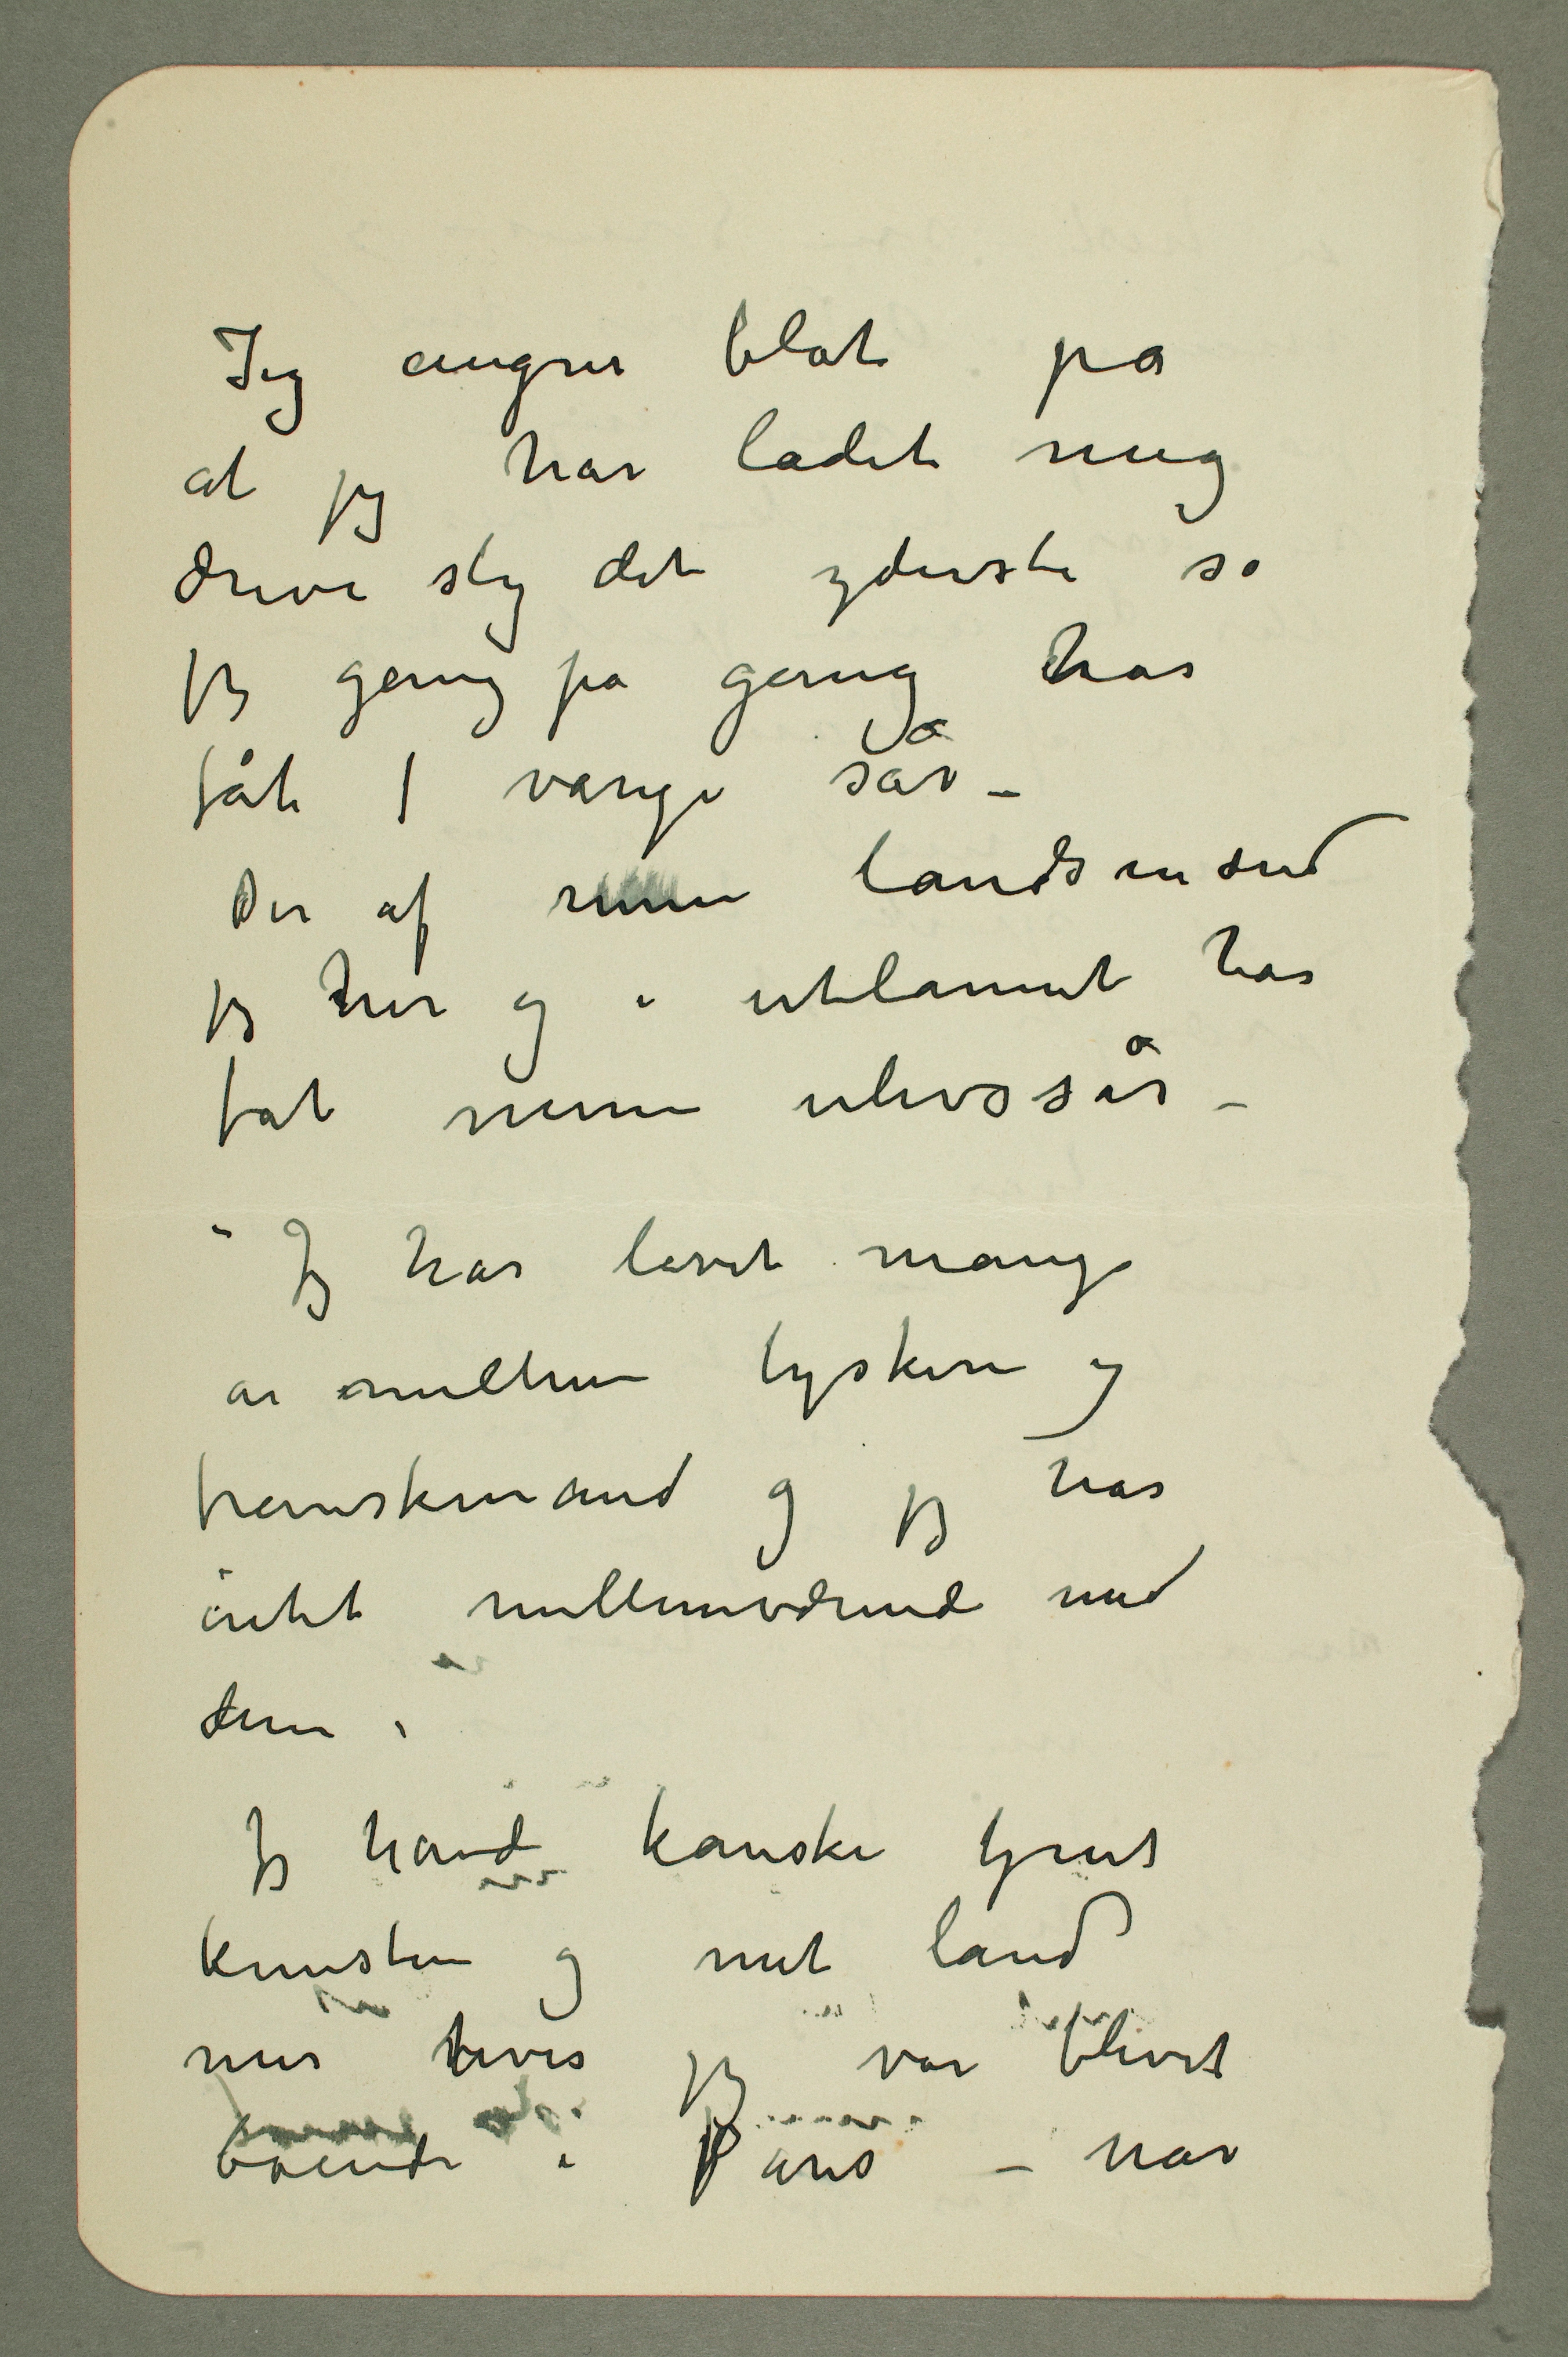 Jeg angrer blot på
at jeg har ladet mig
drive til det yderste så
jeg gang på gang har
fåt varige sår –
Der af mine landsmænd
jeg her og i utlannet har
fåt mine ulivssår –
Jeg har levet mange
år mellem tyskere og
franskmænd og jeg har
intet mellemværende med
dem.
Jeg havde kanske tjent
kunsten og mit land
mer hvis jeg var blivet
boende i Paris – når